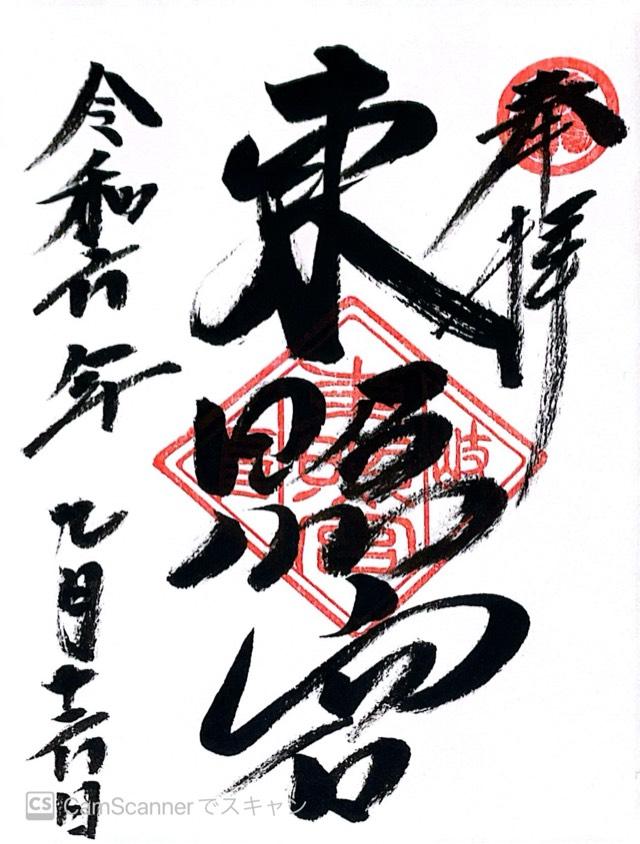 奉拝
東照宮
令和六年 九月十六日
CS CamScannerでスキャン